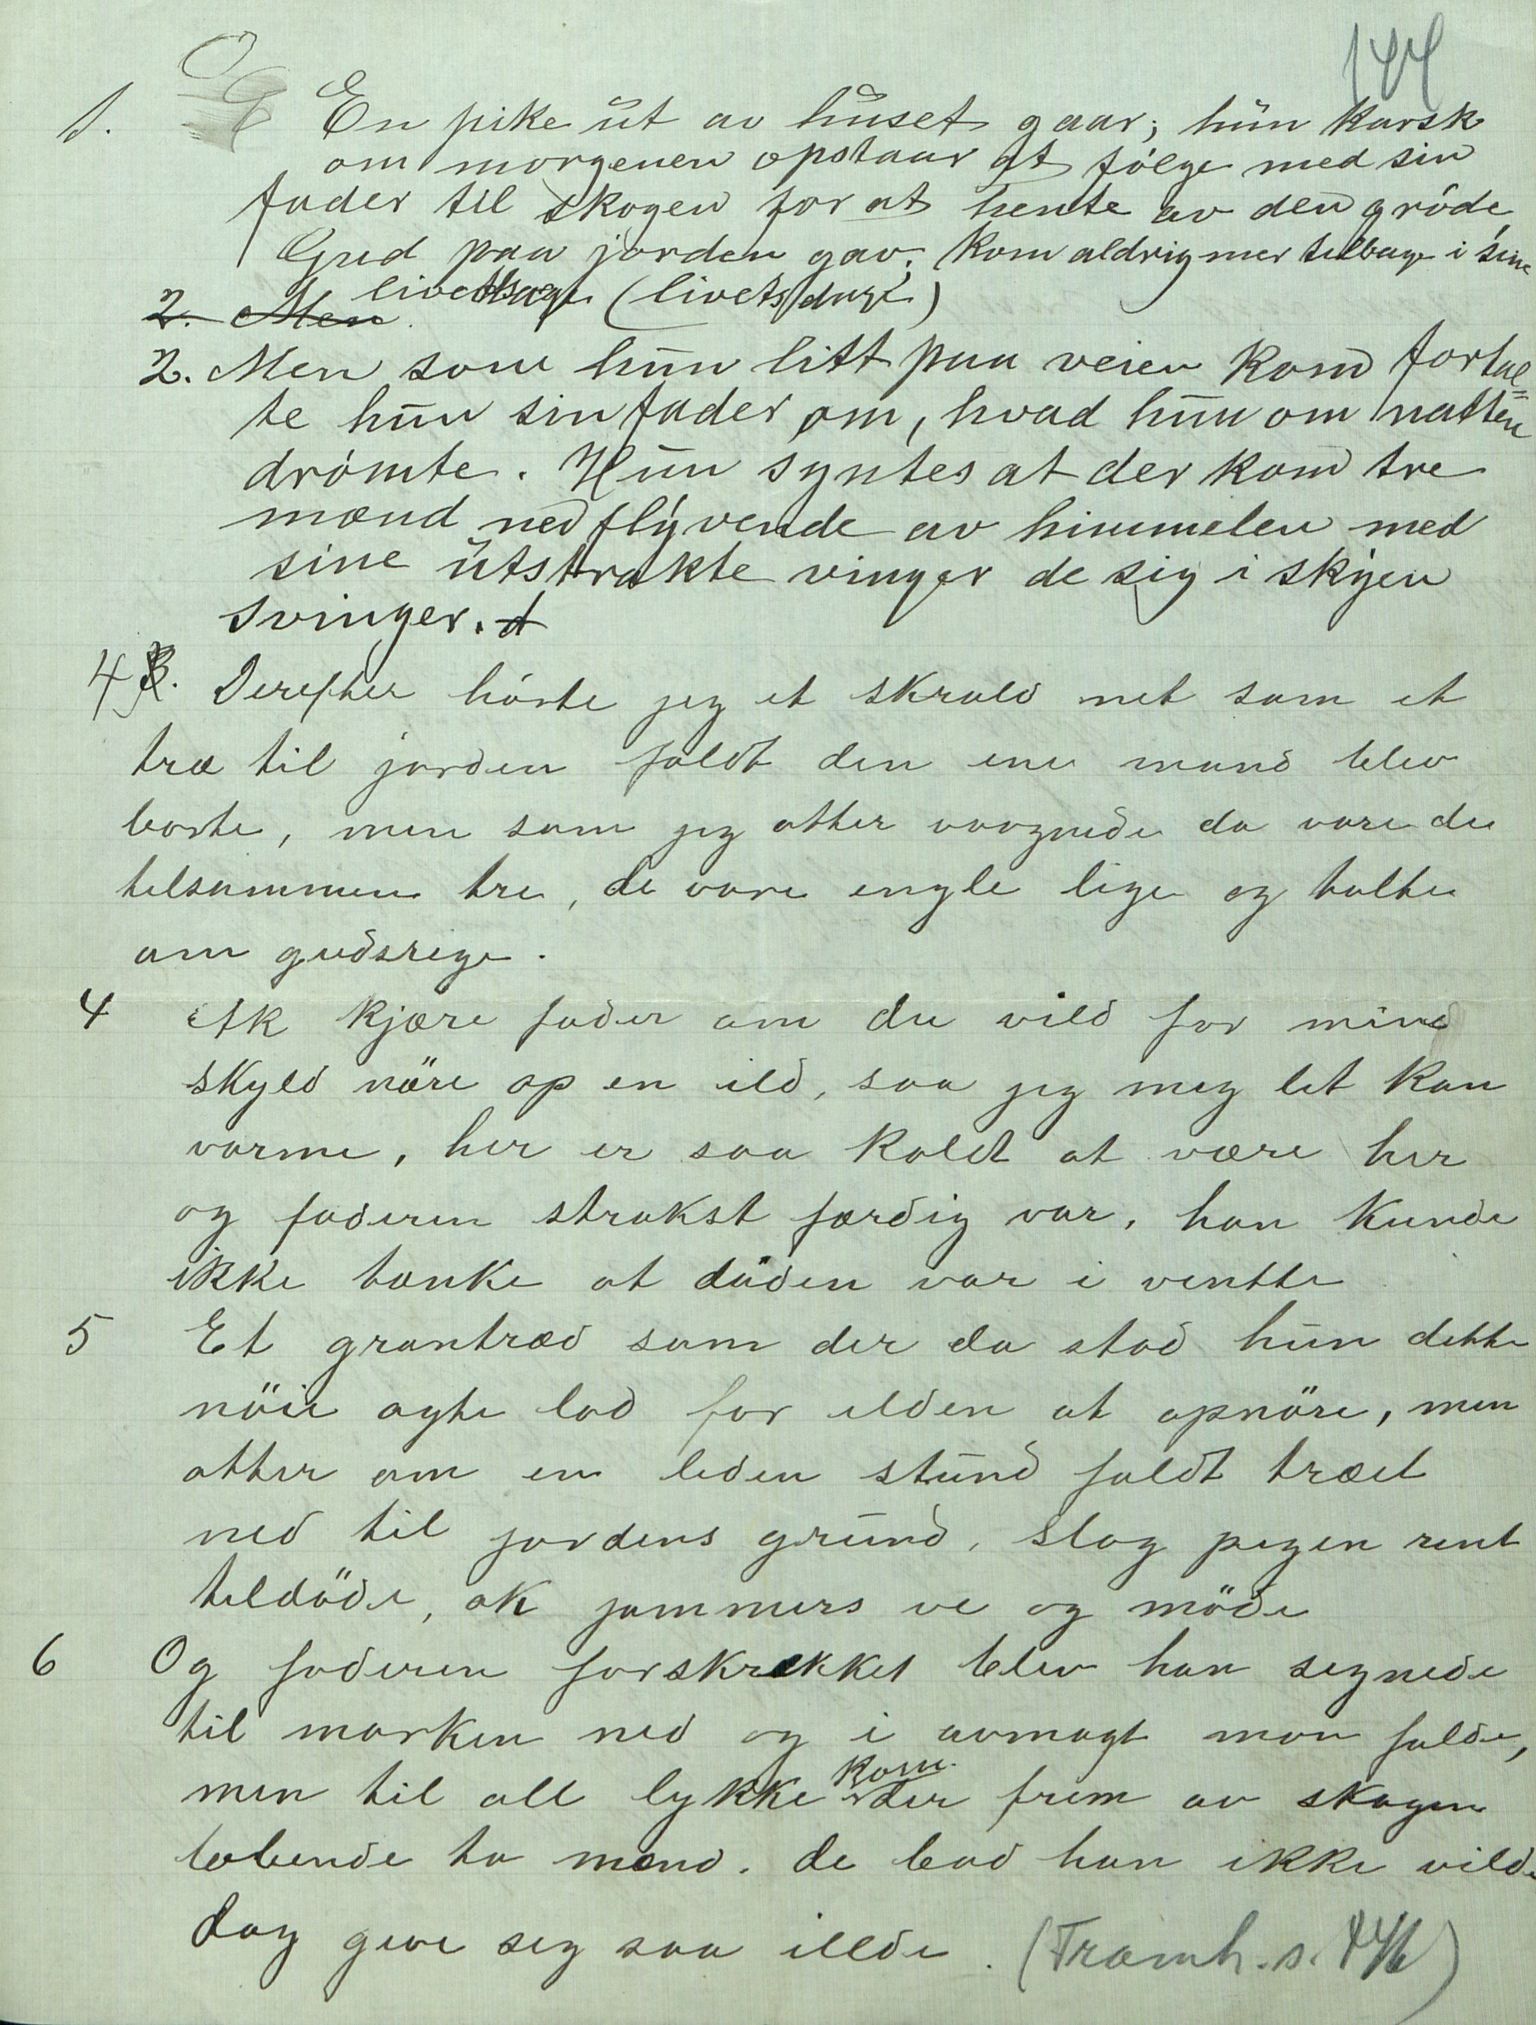 144
1. En pike ut av huset gaar, hun karsk
om morgenen opstaar at følge med sin
fader til skogen for at hente av den grøde,
Gud paa jorden gav. Kom aldrig mer tilbage i sine
(livets dage)
2. Men
2. Men som hun litt paa veien kom fortæl=
te hun sin fader om, hvad hun om natten
drømte. Hun syntes at der kom tre
mænd nedflyvende av himmelen med
sine utstrakte vinger de sig i skyen
svinger.
4 3. Derefter hörte jeg et skrald net som et
træ til jorden faldt den ene mand blev
borte, men som jeg atter vaagnede da vare de
tilsammen tre, de vare engle lige og talte
om gudsrige.
4 Ak kjære fader om du vild for mind
skyld nöre op en ild, saa jeg mig let kan
varme, her er saa kaldt at være her
og faderen strakst færdig var, han kunde
ikke tænke at döden var i ventte
5 Et grantræd som der da stod hun dette
nöie agte lod for ilden at opnöre, men
atter om en liden stund faldt træet
ned til jordens grund, slog pigen rent
tildöde, ak jammers ve og möde
6 Og faderen forskrækket blev han segnede
til marken ned og i avmagt mon falde,
men til all lykke kom der frem av skogen
løbende to mænd. de bad han ikke vilde
dog give sig saa illde. (Framh. s. 146)